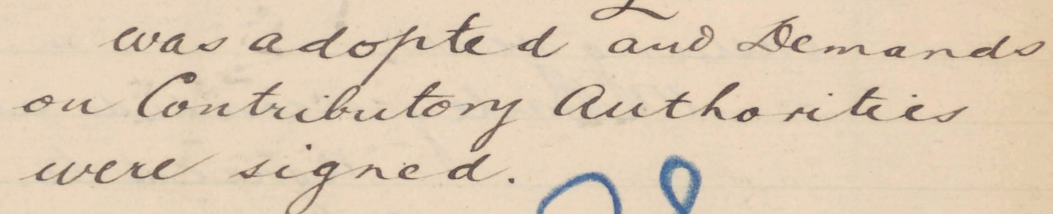 was adopted and Demands
on Contributory Authorities
were signed.